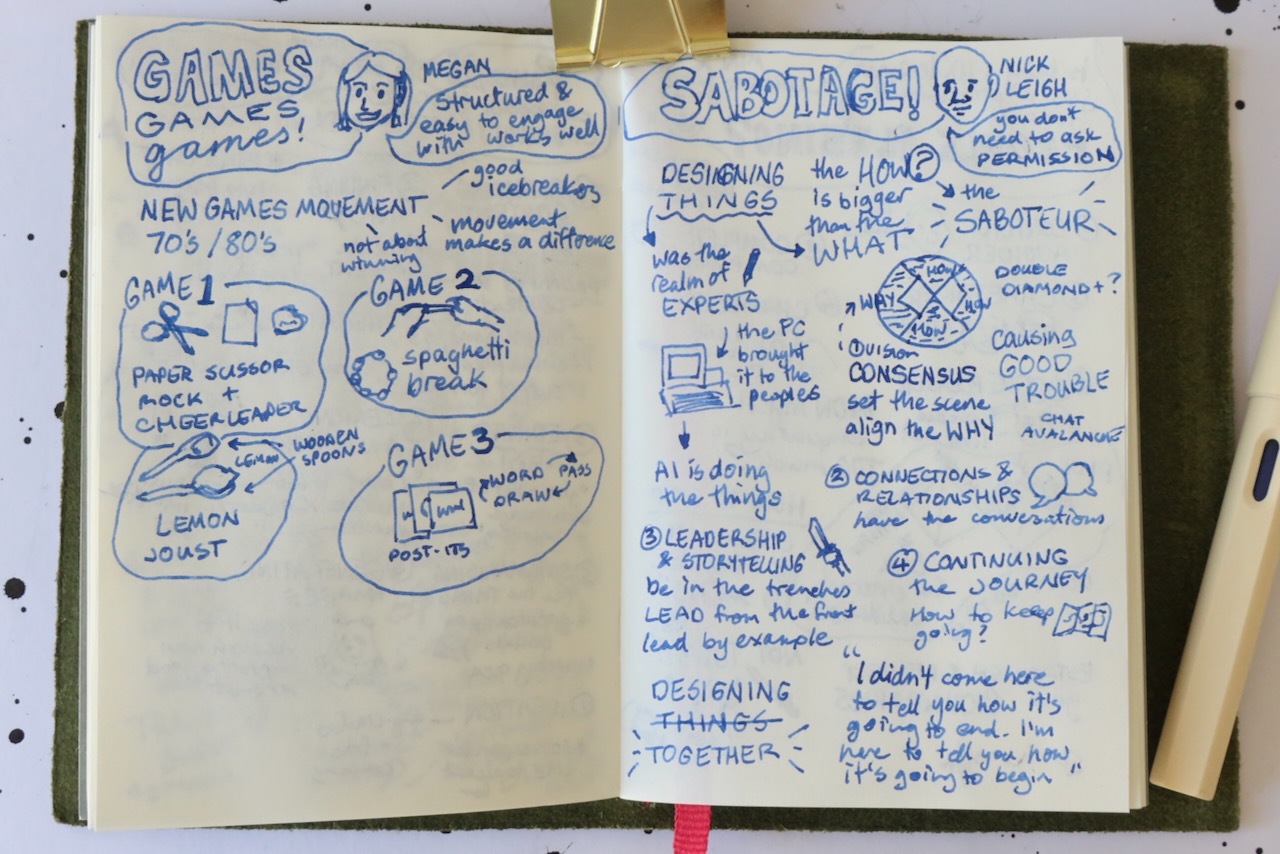 GAMES
GAMES
games!
MEGAN
Structured &
easy to engage
with works well
good
icebreakers
NEW GAMES MOVEMENT
70's / 80's
not about
winning
movement
makes a difference
GAME 1
PAPER SCISSOR
ROCK +
CHEERLEADER
GAME 2
spaghetti
break
LEMON
WOODEN
SPOONS
LEMON
JOUST
GAME 3
WORD
DRAW
PASS
POST-ITS
SABOTAGE!
NICK
LEIGH
you don't
need to ask
PERMISSION
DESIGNING
THINGS
was the
realm of
EXPERTS
the PC
brought
it to the
peoples
AI is doing
the things
the HOW?
is bigger
than the
WHAT
the
SABOTEUR
HOW
WHY
HOW
HOW
DOUBLE
DIAMOND+?
causing
GOOD
TROUBLE
CHAT
AVALANCHE
① VISION
CONSENSUS
set the scene
align the WHY
② CONNECTIONS &
RELATIONSHIPS
have the conversations
③ LEADERSHIP
& STORYTELLING
be in the trenches
LEAD from the front
lead by example
④ CONTINUING
the JOURNEY
How to keep
going?
DESIGNING
THINGS
TOGETHER
"I didn't come here
to tell you how it's
going to end. I'm
here to tell you how
it's going to begin"